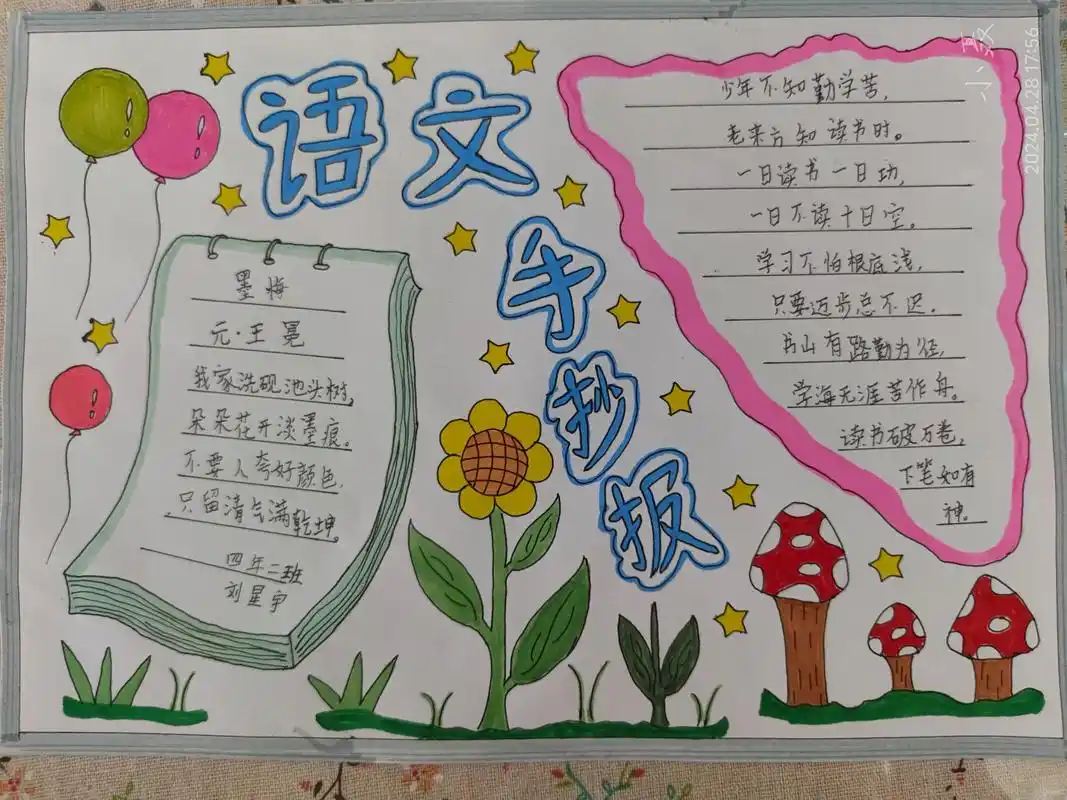 语文
手
抄
报
墨梅
元·王冕
我家洗砚池头树,
朵朵花开淡墨痕。
不要人夸好颜色,
只留清气满乾坤。
四年二班
刘星宇
少年不知勤学苦,
老来方知读书时。
一日读书一日功,
一日不读十日空。
学习不怕根底浅,
只要迈步总不迟。
书山有路勤为径,
学海无涯苦作舟。
读书破万卷,
下笔如有
神。
2024.04.28 17:56